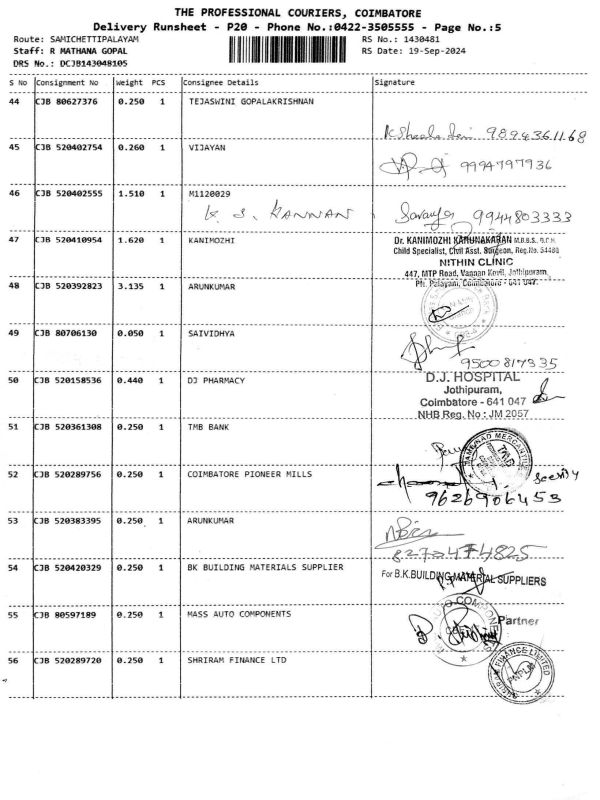 THE PROFESSIONAL COURIERS, COIMBATORE
Delivery Runsheet - P20 - Phone No.:0422-3505555 - Page No.:5
Route: SAMICHETTIPALAYAM RS No.: 1430481
Staff: R MATHANA GOPAL RS Date: 19-Sep-2024
DRS No.: DCJB143048105
S No Consignment No Weight PCS Consignee Details Signature
44 CJB 80627376 0.250 1 TEJASWINI GOPALAKRISHNAN
9894361168
45 CJB 520402754 0.260 1 VIJAYAN
9994797936
46 CJB 520402555 1.510 1 M1120029
K. S. KANNAN Saranya 9944803333
47 CJB 520410954 1.620 1 KANIMOZHI
Dr. KANIMOZHI KARUNAKARAN M.B.B.S., D.C.H.
Child Specialist, Civil Asst. Surgeon, Reg.No. 54480
NITHIN CLINIC
447, MTP Road, Vannan Kovil, Jothipuram,
Pti. Palayam, Coimbatore - 641 047.
48 CJB 520392823 3.135 1 ARUNKUMAR
49 CJB 80706130 0.050 1 SAIVIDHYA
9500817335
50 CJB 520158536 0.440 1 DJ PHARMACY
D.J. HOSPITAL
Jothipuram,
Coimbatore - 641 047
NHB Reg. No : JM 2057
51 CJB 520361308 0.250 1 TMB BANK
52 CJB 520289756 0.250 1 COIMBATORE PIONEER MILLS
9626906453
53 CJB 520383395 0.250 1 ARUNKUMAR
8272474825
54 CJB 520420329 0.250 1 BK BUILDING MATERIALS SUPPLIER
For B.K.BUILDING MATERIAL SUPPLIERS
Partner
55 CJB 80597189 0.250 1 MASS AUTO COMPONENTS
56 CJB 520289720 0.250 1 SHRIRAM FINANCE LTD